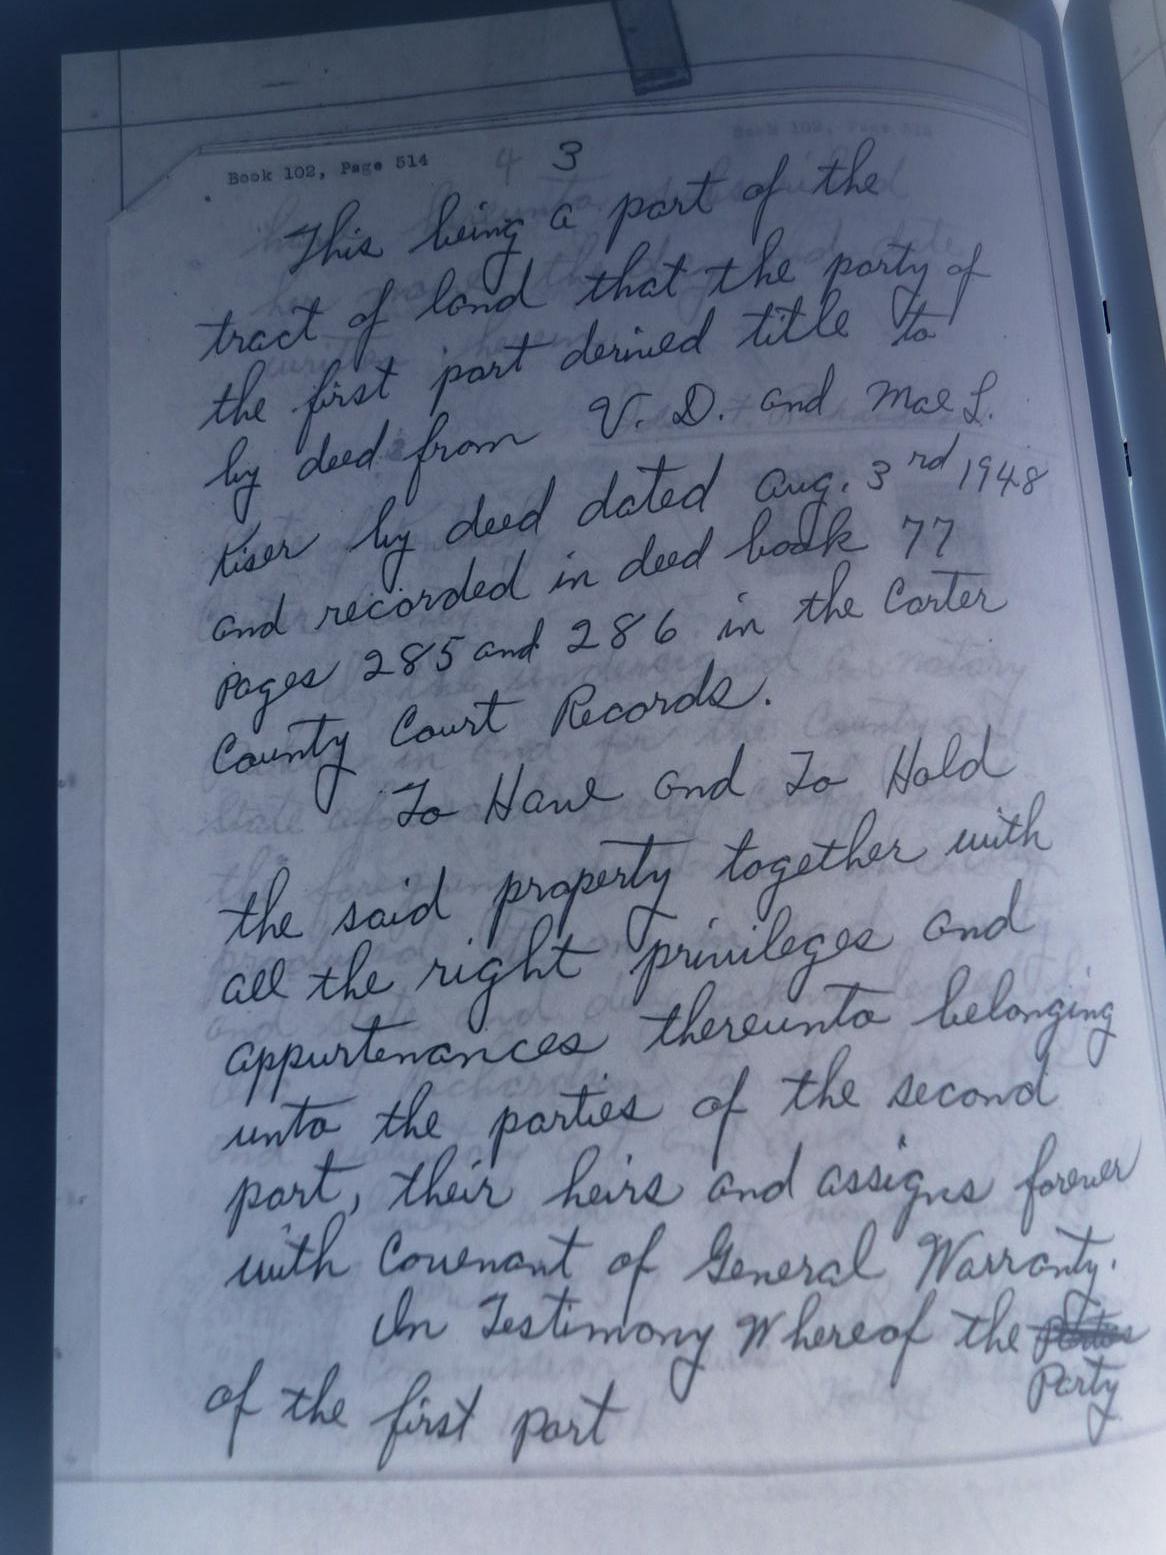 Book 102, Page 514
4 3
This being a part of the
tract of land that the party of
the first part derived title to
by deed from V. D. and Mae L.
Kiser by deed dated Aug. 3rd 1948
and recorded in deed book 77
pages 285 and 286 in the Carter
County Court Records.
To Have and To Hold
the said property together with
all the right privileges and
appurtenances thereunto belonging
unto the parties of the second
part, their heirs and assigns forever
with Covenant of General Warranty.
In Testimony Whereof the
Party
of the first part